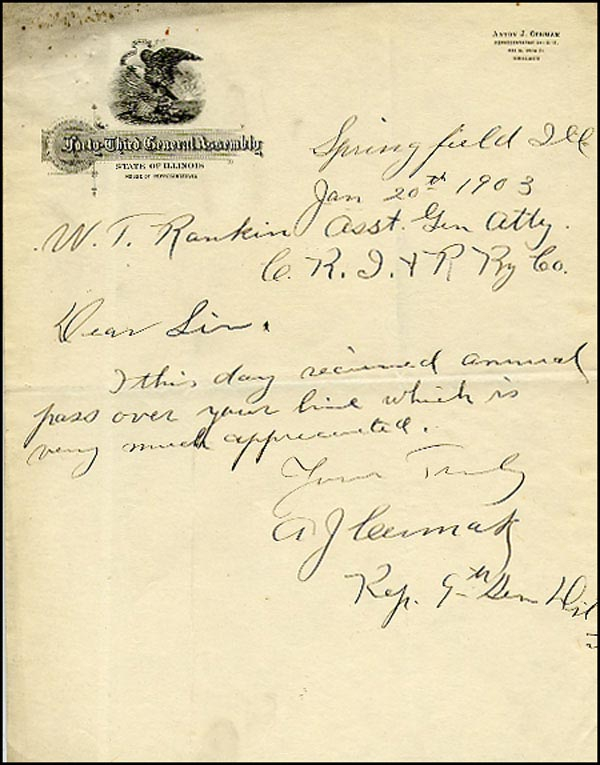 ANTON J. CERMAK
CHICAGO
Forty-Third General Assembly
STATE OF ILLINOIS
HOUSE OF REPRESENTATIVES
Springfield Ill
Jan 20th 1903
W. T. Rankin Asst. Gen Atty.
C. R. I. & P. Ry Co.
Dear Sir.
I this day recieved annual
pass over your line which is
very much appreciated.
Yours Truly
A J Cermak
Rep. 9th Sen Dist